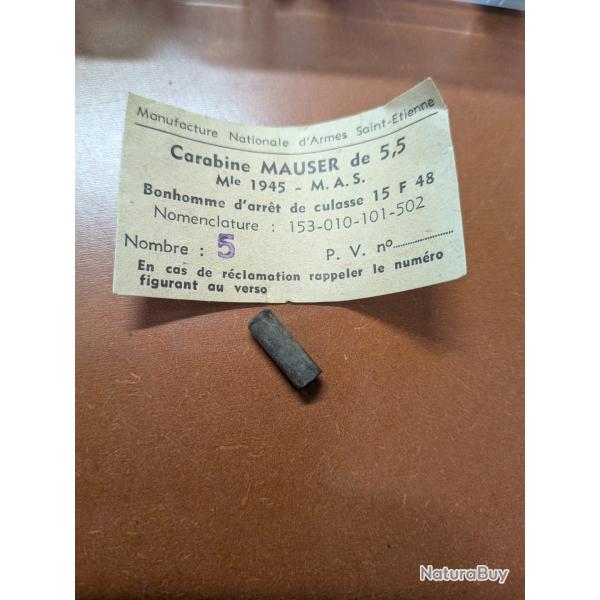 Manufacture Nationale d'Armes Saint-Etienne
Carabine MAUSER de 5,5
Mle 1945 - M.A.S.
Bonhomme d'arrêt de culasse 15 F 48
Nomenclature : 153-010-101-502
Nombre : 5 P. V. no..................
En cas de réclamation rappeler le numéro
figurant au verso
NaturaBuy